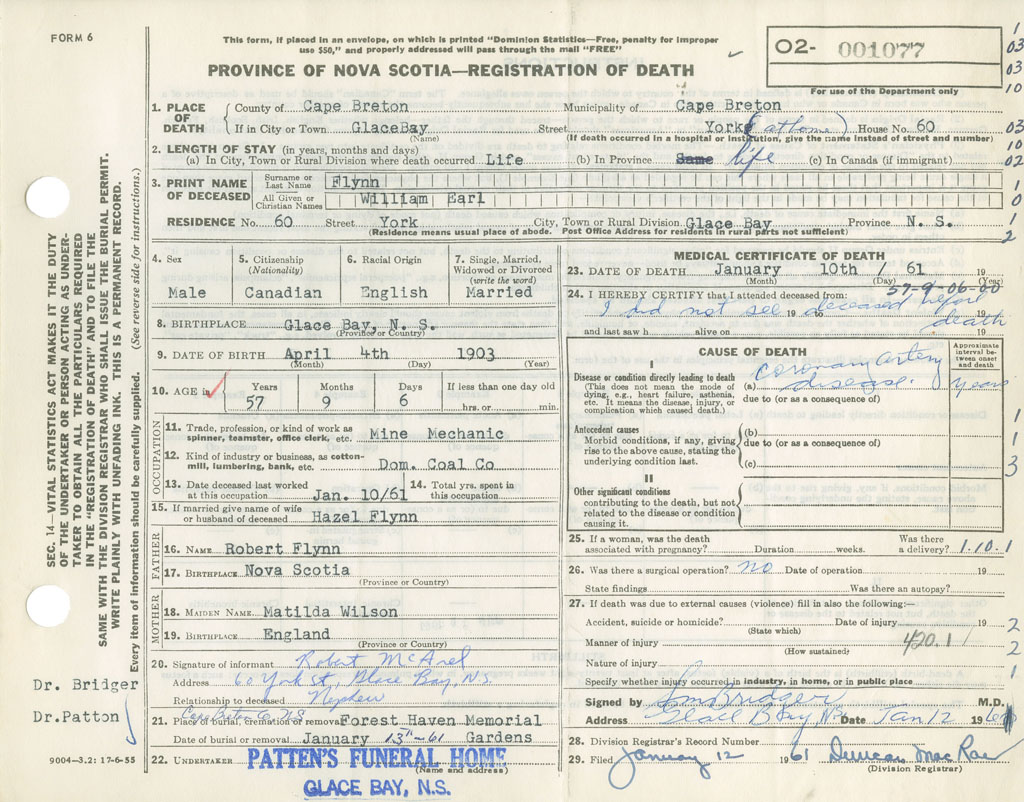 FORM 6
This form, if placed in an envelope, on which is printed "Dominion Statistics—Free, penalty for improper
use $50," and properly addressed will pass through the mail "FREE"
PROVINCE OF NOVA SCOTIA—REGISTRATION OF DEATH
02- 001077
For use of the Department only
1. PLACE OF DEATH
County of Cape Breton Municipality of Cape Breton
If in City or Town GlaceBay Street York (at home) House No. 60
(Name) (If death occurred in a hospital or institution, give the name instead of street and number)
2. LENGTH OF STAY (in years, months and days)
(a) In City, Town or Rural Division where death occurred Life (b) In Province Same life (c) In Canada (if immigrant)
3. PRINT NAME OF DECEASED
Surname or Last Name Flynn
All Given or Christian Names William Earl
RESIDENCE No. 60 Street York City, Town or Rural Division Glace Bay Province N. S.
(Residence means usual place of abode. Post Office Address for residents in rural parts not sufficient)
4. Sex
Male
5. Citizenship
(Nationality)
Canadian
6. Racial Origin
English
7. Single, Married,
Widowed or Divorced
(write the word)
Married
8. BIRTHPLACE Glace Bay, N. S.
(Province or Country)
9. DATE OF BIRTH April 4th 1903
(Month) (Day) (Year)
10. AGE in
Years Months Days If less than one day old
57 9 6 hrs. or min.
OCCUPATION
11. Trade, profession, or kind of work as
spinner, teamster, office clerk, etc. Mine Mechanic
12. Kind of industry or business, as cotton-
mill, lumbering, bank, etc. Dom. Coal Co
13. Date deceased last worked
at this occupation Jan. 10/61
14. Total yrs. spent in
this occupation
15. If married give name of wife
or husband of deceased Hazel Flynn
FATHER
16. NAME Robert Flynn
17. BIRTHPLACE Nova Scotia
(Province or Country)
MOTHER
18. MAIDEN NAME Matilda Wilson
19. BIRTHPLACE England
(Province or Country)
20. Signature of informant Robert McArel
Address 60 York St, Glace Bay, N.S.
Relationship to deceased Nephew
Cape Breton Co. N.S.
21. Place of burial, cremation or removal Forest Haven Memorial
Date of burial or removal January 13th-61 Gardens
22. UNDERTAKER PATTEN'S FUNERAL HOME
(Name and address)
GLACE BAY, N.S.
MEDICAL CERTIFICATE OF DEATH
23. DATE OF DEATH January 10th / 61 19
(Month) (Day) (Year)
57-9-06-00
24. I HEREBY CERTIFY that I attended deceased from:
I did not see deceased before
19 to 19
death
and last saw h alive on 19
CAUSE OF DEATH
Approximate
interval be-
tween onset
and death
I
Disease or condition directly leading to death
(This does not mean the mode of
dying, e.g., heart failure, asthenia,
etc. It means the disease, injury, or
complication which caused death.)
(a) coronary artery
disease. years
due to (or as a consequence of)
Antecedent causes
Morbid conditions, if any, giving
rise to the above cause, stating the
underlying condition last.
(b)
due to (or as a consequence of)
(c)
II
Other significant conditions
contributing to the death, but not
related to the disease or condition
causing it.
25. If a woman, was the death
associated with pregnancy? Duration weeks.
Was there
a delivery? 1.10.1
26. Was there a surgical operation? no Date of operation 19
State findings Was there an autopsy?
27. If death was due to external causes (violence) fill in also the following:—
Accident, suicide or homicide? Date of injury 19
(State which)
Manner of injury 420.1
(How sustained)
Nature of injury
Specify whether injury occurred in industry, in home, or in public place
Signed by Bridger M.D.
Address Glace Bay NS Date Jan 12 1961
28. Division Registrar's Record Number
29. Filed January 12 1961 Duncan MacRae
(Division Registrar)
SEC. 14—VITAL STATISTICS ACT MAKES IT THE DUTY
OF THE UNDERTAKER OR PERSON ACTING AS UNDER-
TAKER TO OBTAIN ALL THE PARTICULARS REQUIRED
IN THE "REGISTRATION OF DEATH" AND TO FILE THE
SAME WITH THE DIVISION REGISTRAR WHO SHALL ISSUE THE BURIAL PERMIT.
WRITE PLAINLY WITH UNFADING INK. THIS IS A PERMANENT RECORD.
Every item of information should be carefully supplied. (See reverse side for instructions.)
Dr. Bridger
Dr. Patton
9004—3.2: 17-6-55
1
03
03
10
03
10
02
1
0
1
2
1
1
3
2
2
1